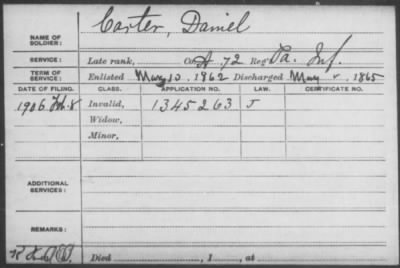 NAME OF SOLDIER: Carter, Daniel
SERVICE: Late rank, Co. A. 72 Reg't Pa. Inf.
TERM OF SERVICE: Enlisted May 10, 1862 Discharged May , 1865
DATE OF FILING. CLASS. APPLICATION NO. LAW. CERTIFICATE NO.
1906 Feb. 8 Invalid, 1345263 J
Widow,
Minor,
ADDITIONAL SERVICES:
REMARKS:
Died , 1 , at